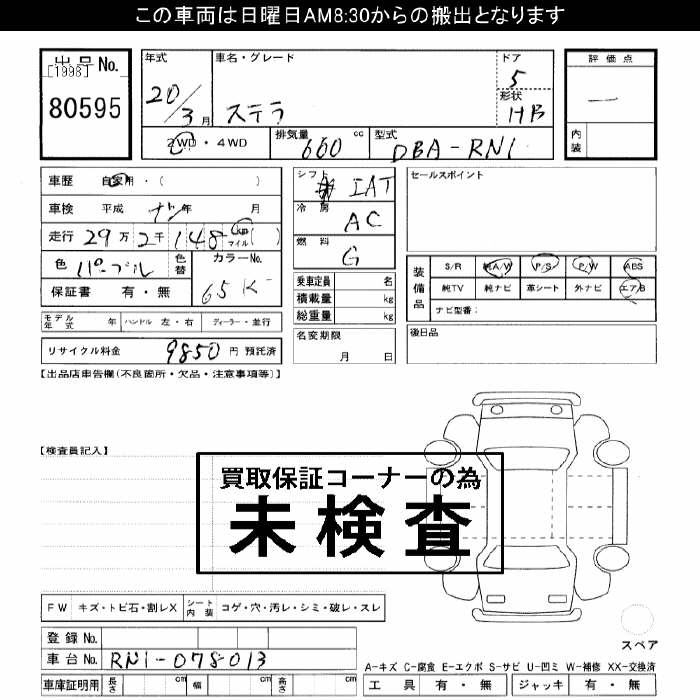 この車両は日曜日AM8:30からの搬出となります
出品No.
[1998]
80595
年式
20/3月
車名・グレード
ステラ
ドア
5
形状
HB
2WD・4WD
排気量
660cc
型式
DBA-RN1
評価点
―
内装
車歴 自家用・( )
車検 平成 ナシ年 月
走行 29万2千148 km マイル( )
色 パープル
色替
カラーNo.
65K
保証書 有・無
モデル年式 年
ハンドル 左・右
ディーラー・並行
リサイクル料金 9850円 預託済
シフト IAT
冷房 AC
燃料 G
乗車定員 名
積載量 kg
総重量 kg
名変期限
月 日
セールスポイント
装備品
S/R 純A/W P/S P/W ABS
純TV 純ナビ 革シート 外ナビ エアB
ナビ型番:
後日品
【出品店車告欄(不良箇所・欠品・注意事項等)】
【検査員記入】
買取保証コーナーの為
未検査
FW キズ・トビ石・割レX
シート内装 コゲ・穴・汚レ・シミ・破レ・スレ
登録No.
車台No. RN1-078013
車庫証明用 長さ cm 幅 cm 高さ cm
スペア
A-キズ C-腐食 E-エクボ S-サビ U-凹ミ W-補修 XX-交換済
工具 有・無 ジャッキ 有・無